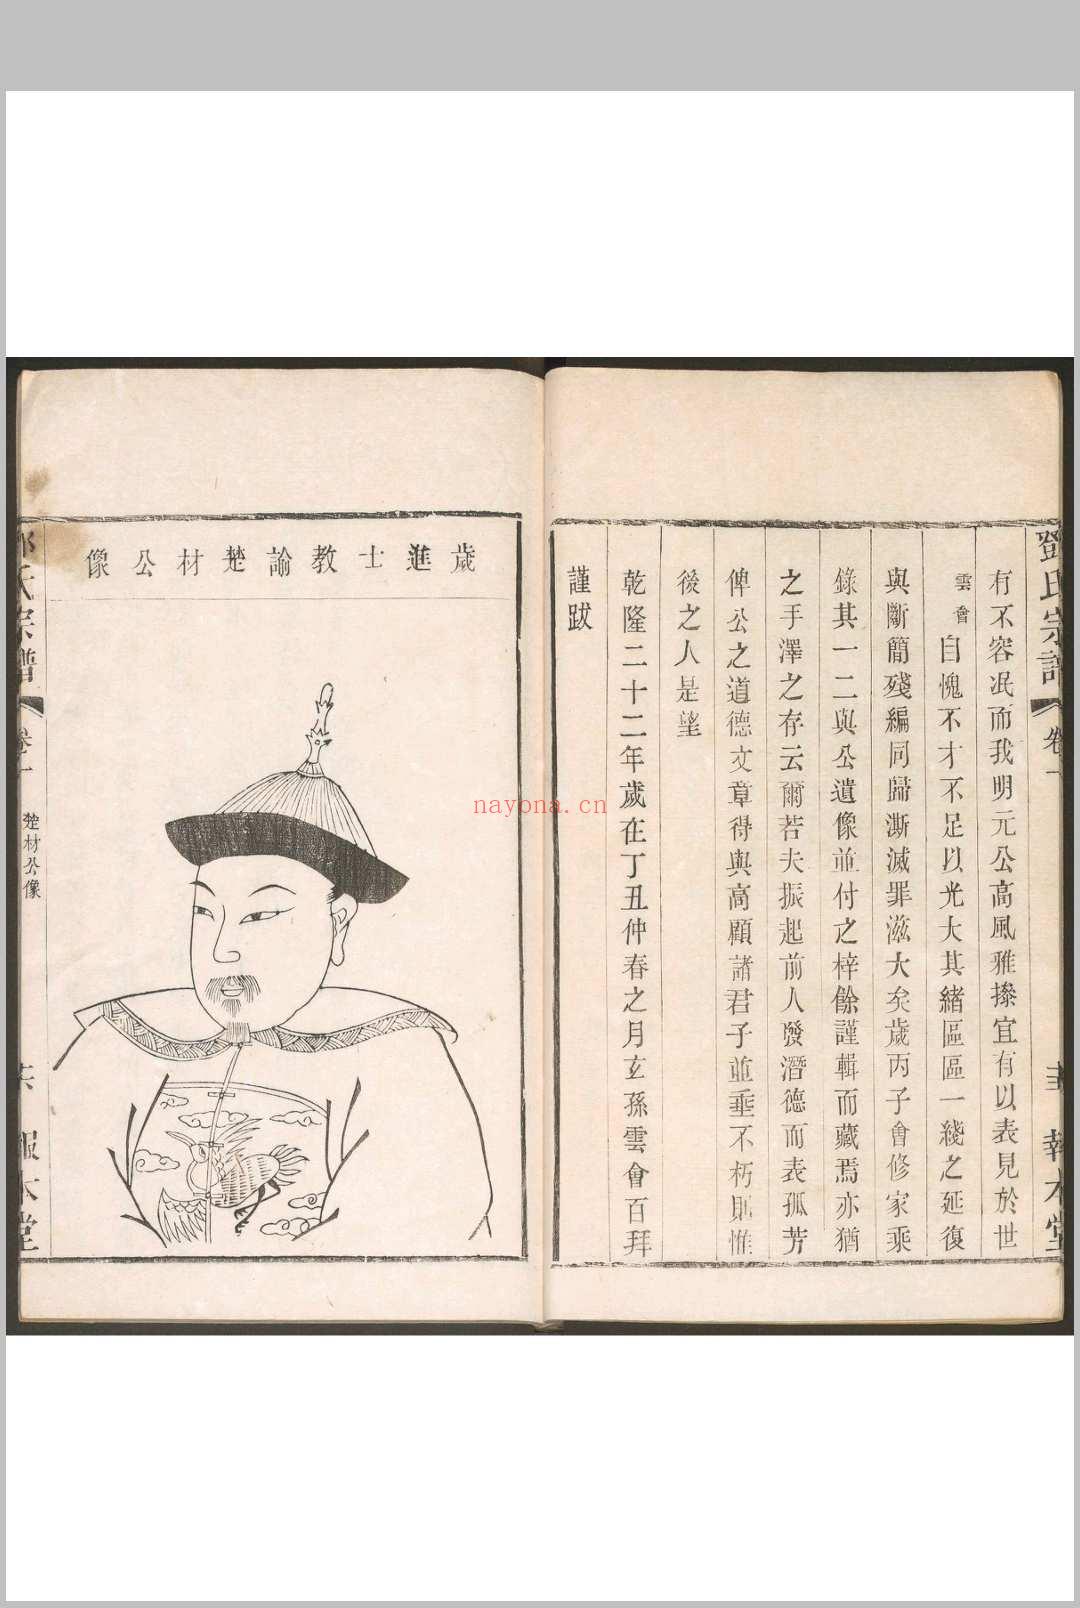 鄧氏宗譜 卷一
有不容冺而我明元公高風雅操宜有以表見於世
雲會自愧不才不足以光大其緒區區一綫之延復
與斷簡殘編同歸澌滅罪滋大矣歲丙子會修家乘
錄其一二與公遺像並付之梓餘謹輯而藏焉亦猶
之手澤之存云爾若夫振起前人發潛德而表孤芳
俾公之道德文章得與高顧諸君子並垂不朽則惟
後之人是望
乾隆二十二年歲在丁丑仲春之月玄孫雲會百拜
謹跋
歲進士教諭楚材公像
氏宗譜 卷一 楚材公像 報本堂
nayona.cn